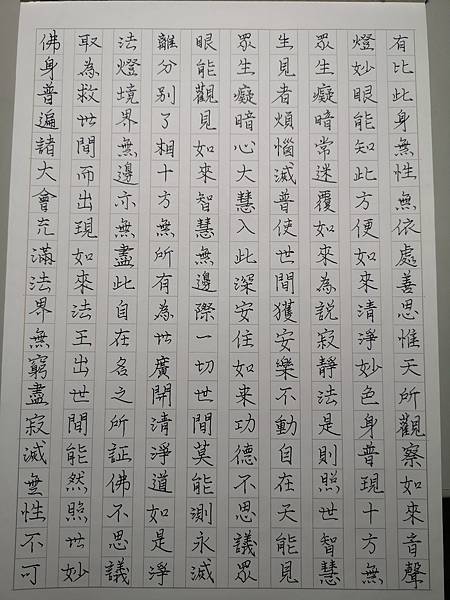 有比此身無性無依處善思惟天所觀察如來音聲
燈妙眼能知此方便如來清淨妙色身普現十方無
眾生癡暗常迷覆如來為說寂靜法是則照世智慧
生見者煩惱滅普使世間獲安樂不動自在天能見
眾生癡暗心大慧入此深安住如來功德不思議眾
眼能觀見如來智慧無邊際一切世間莫能測永滅
離分別了相十方無所有為世廣開清淨道如是淨
法燈境界無邊亦無盡此自在名之所証佛不思議
取為救世間而出現如來法王出世間能然照世妙
佛身普遍諸大會充滿法界無窮盡寂滅無性不可